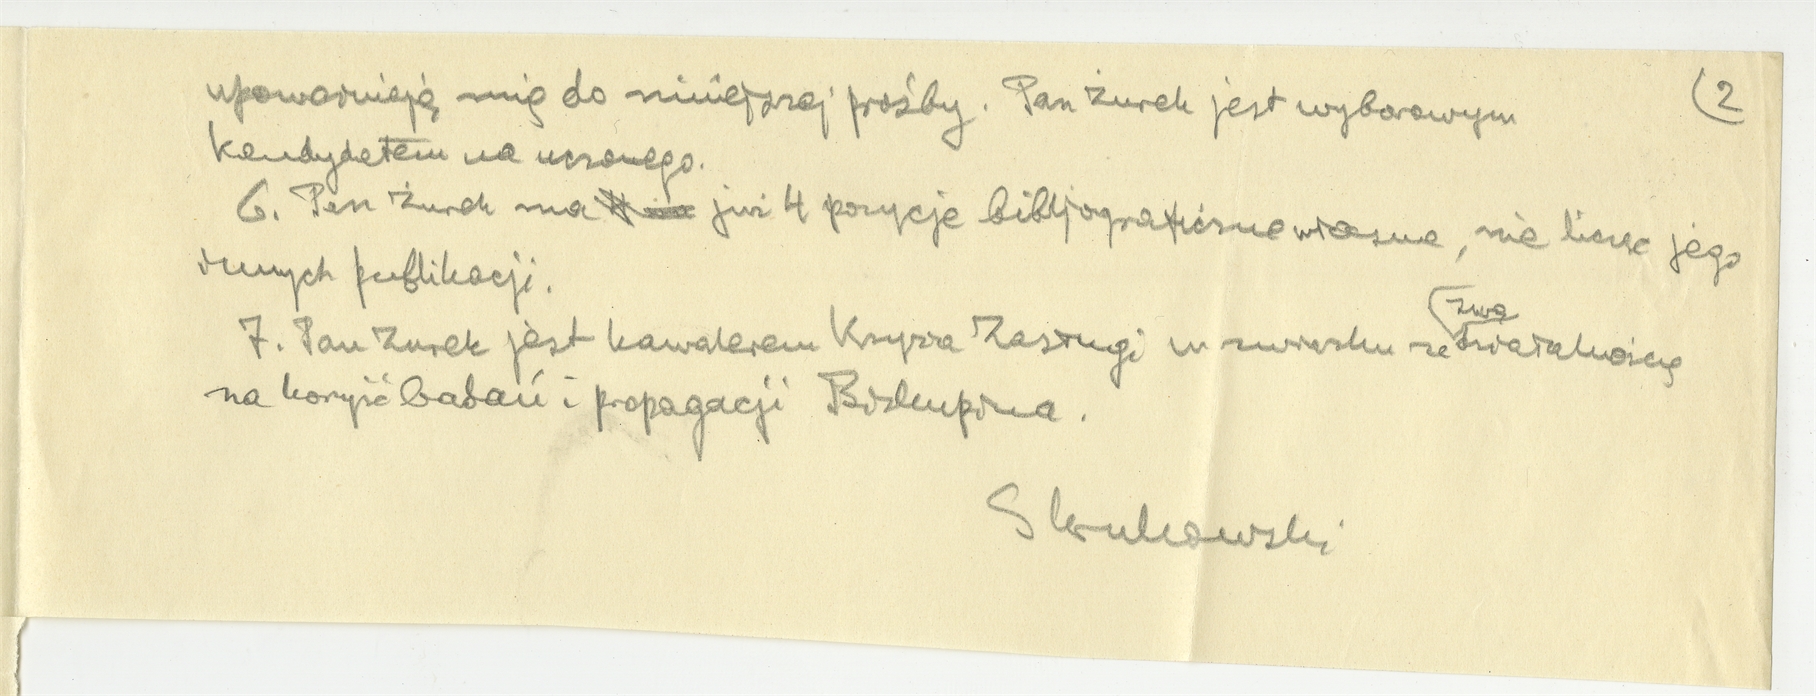 (2
upoważniają mię do niniejszej prośby. Pan Żurek jest wyborowym
kandydatem na uczonego.
6. Pan Żurek ma już 4 pozycje bibljograficzne własne, nie licząc jego
innych publikacji.
7. Pan Żurek jest kawalerem Krzyża Zasługi w związku ze swą działalnością
na korzyść badań i propagacji Biskupina.